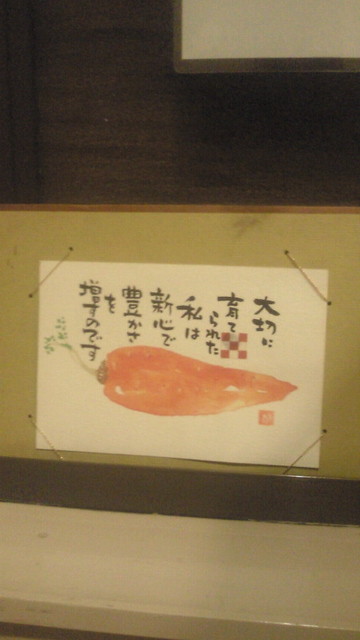 大切に
育てられた
私は
新心で
豊かさ
を
増すのです